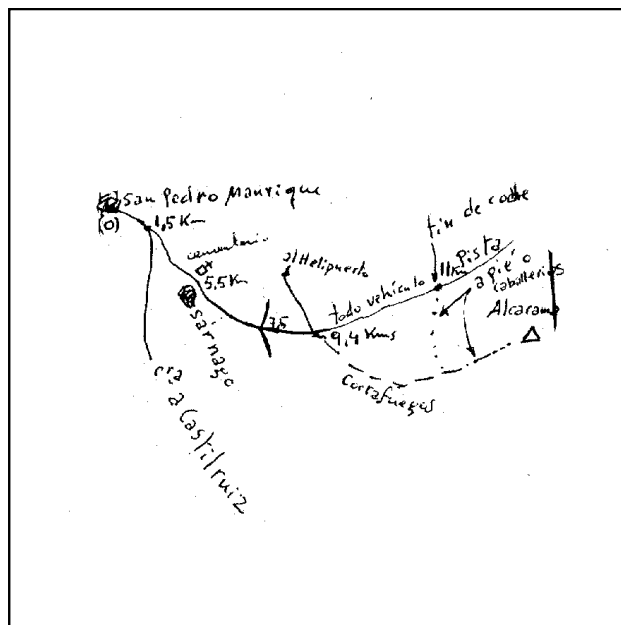 San Pedro Manrique
(o)
1,5 Km
cementerio
5,5 Km
Sarnago
al Helipuerto
7,5
todo vehículo
9,4 Kms
fin de coche
11 Km
pista
a pie o
caballerias
Alcarama
Cortafuegos
cra
a Castilruiz